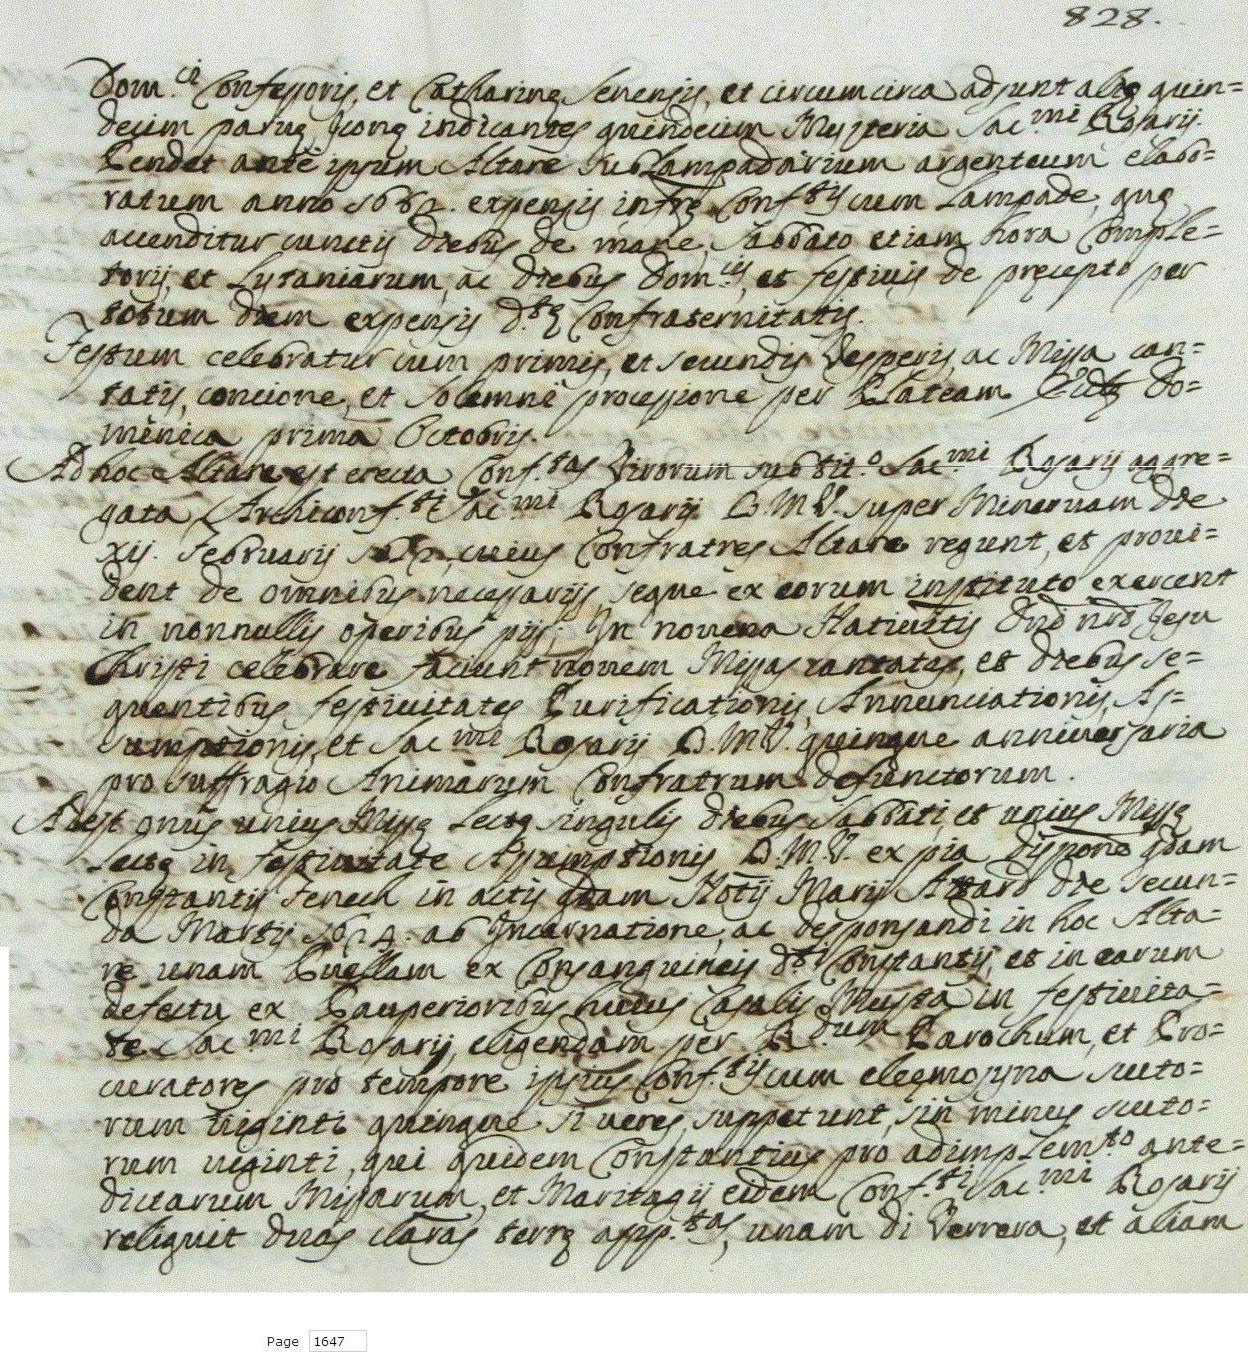 828.
Dom.ci Confessoris, et Catharinę Senensis, et circumcirca adsunt alię quin=
decim parvę Iconę indicantes quindecim Mysteria Sac.mi Rosarij.
Pendet ante ipsum Altare sub Lampadarium argenteum elabo=
ratum anno expensis infrę Conf.tis cum Lampade, quę
accenditur cunctis diebus de mane, Sabbato etiam hora Comple=
torij, et Lytaniarum, ac diebus Dom.cis, et festivis de pręcepto per
totum diem expensis d.tę Confraternitatis.
Festum celebratur cum primis, et secundis Vesperis, ac Missa can=
tatis, concione, et solemni processione per Plateam Do=
minica prima Octobris.
Ad hoc Altare est erecta Conf.tas Virorum sub tit.o Sac.mi Rosarij aggre=
gata Archiconf.ti Sac.mi Rosarij B.M.V. super Minervam die
xij. Februarij cuius Confratres Altare regunt, et provi=
dent de omnibus necessarijs, seque ex eorum instituto exercent
in nonnullis operibus pijs; In novena Nativitis Dnd nrd Jesu
Christi celebrare faciunt novem Missas cantatas, et diebus se=
quentibus festivitates Purificationis, Annunciationis, As=
sumptionis, et Sac.mi Rosarij B.M.V. quinque anniversaria
pro suffragio Animarum Confratrum defunctorum.
Adest onus unius Missę Lectę singulis diebus Sabbati, et unius Missę
Lectę in festivitate Assumptionis B.M.V. ex pia dispone qdam
Constantij Fenech in actis qdam Notij Marij Attard die secun=
da Martij 1624. ab Incarnatione, ac desponsandi in hoc Alta=
re unam Puellam ex Consanguineis d.ti Constantij, et in earum
defectu ex Pauperioribus huius Casalis Musta in festivita=
te Sac.mi Rosarij, eligendam per R.dum Parochum, et Pro=
curatores pro tempore ipsius Conf.tis cum eleęmosyna scuto=
rum triginti quinque si vires suppetunt, sin minus scuto=
rum viginti, qui quidem Constantius pro adimplem.to ante=
dictarum Missarum, et Maritagij eidem Conf.ti Sac.mi Rosarij
reliquit duas claras terrę app.tas, unam di Verrera, et aliam
Page 1647